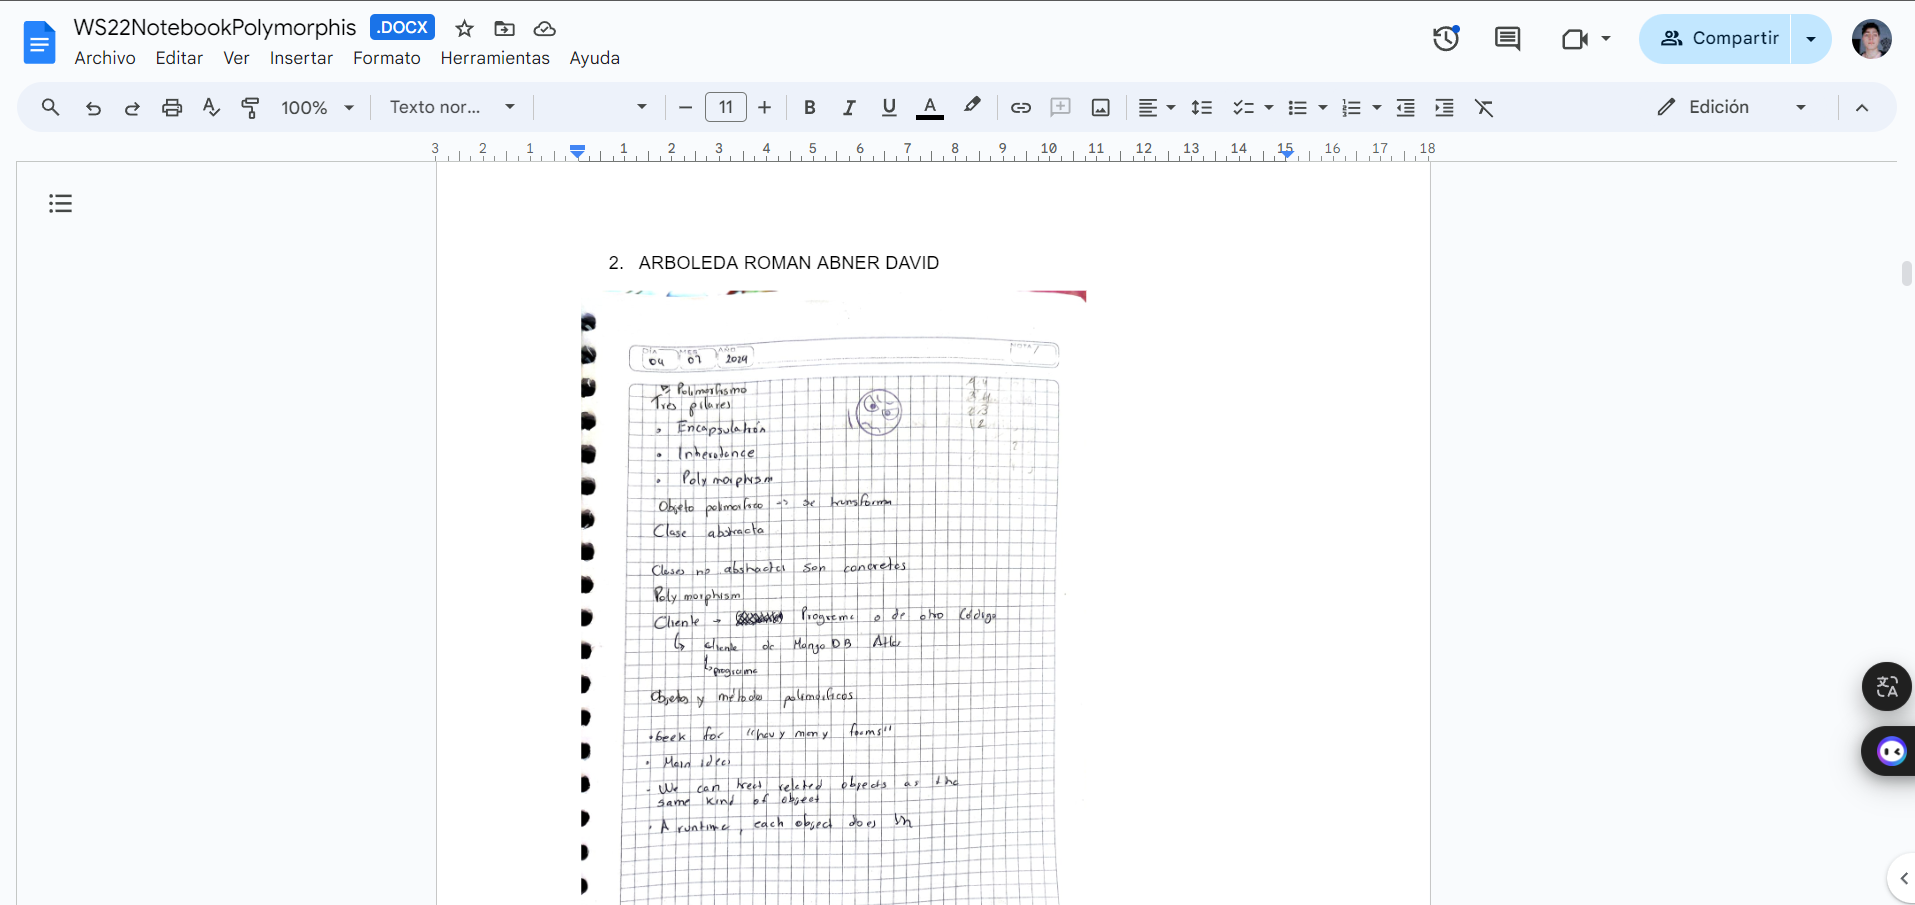 WS22NotebookPolymorphis .DOCX
Archivo Editar Ver Insertar Formato Herramientas Ayuda
Compartir
100% Texto nor... 11 Edición
3 2 1 1 2 3 4 5 6 7 8 9 10 11 12 13 14 15 16 17 18
2. ARBOLEDA ROMAN ABNER DAVID
DIA MES AÑO NOTA
04 07 2024
Polimorfismo
Tres pilares
• Encapsulation
• Inheretance
• Polymorphism
Objeto polimorfico -> se transforma
Clase abstracta
Clases no abstractas son concretas
Polymorphism
Cliente → Programa o de otro Código
↳ cliente de Mongo DB Atlas
↳ programa
Objetos y métodos polimórficos
• Geek for "havy many forms"
• Main idea
- We can treat related objects as the
same kind of object
• A runtime, each object does